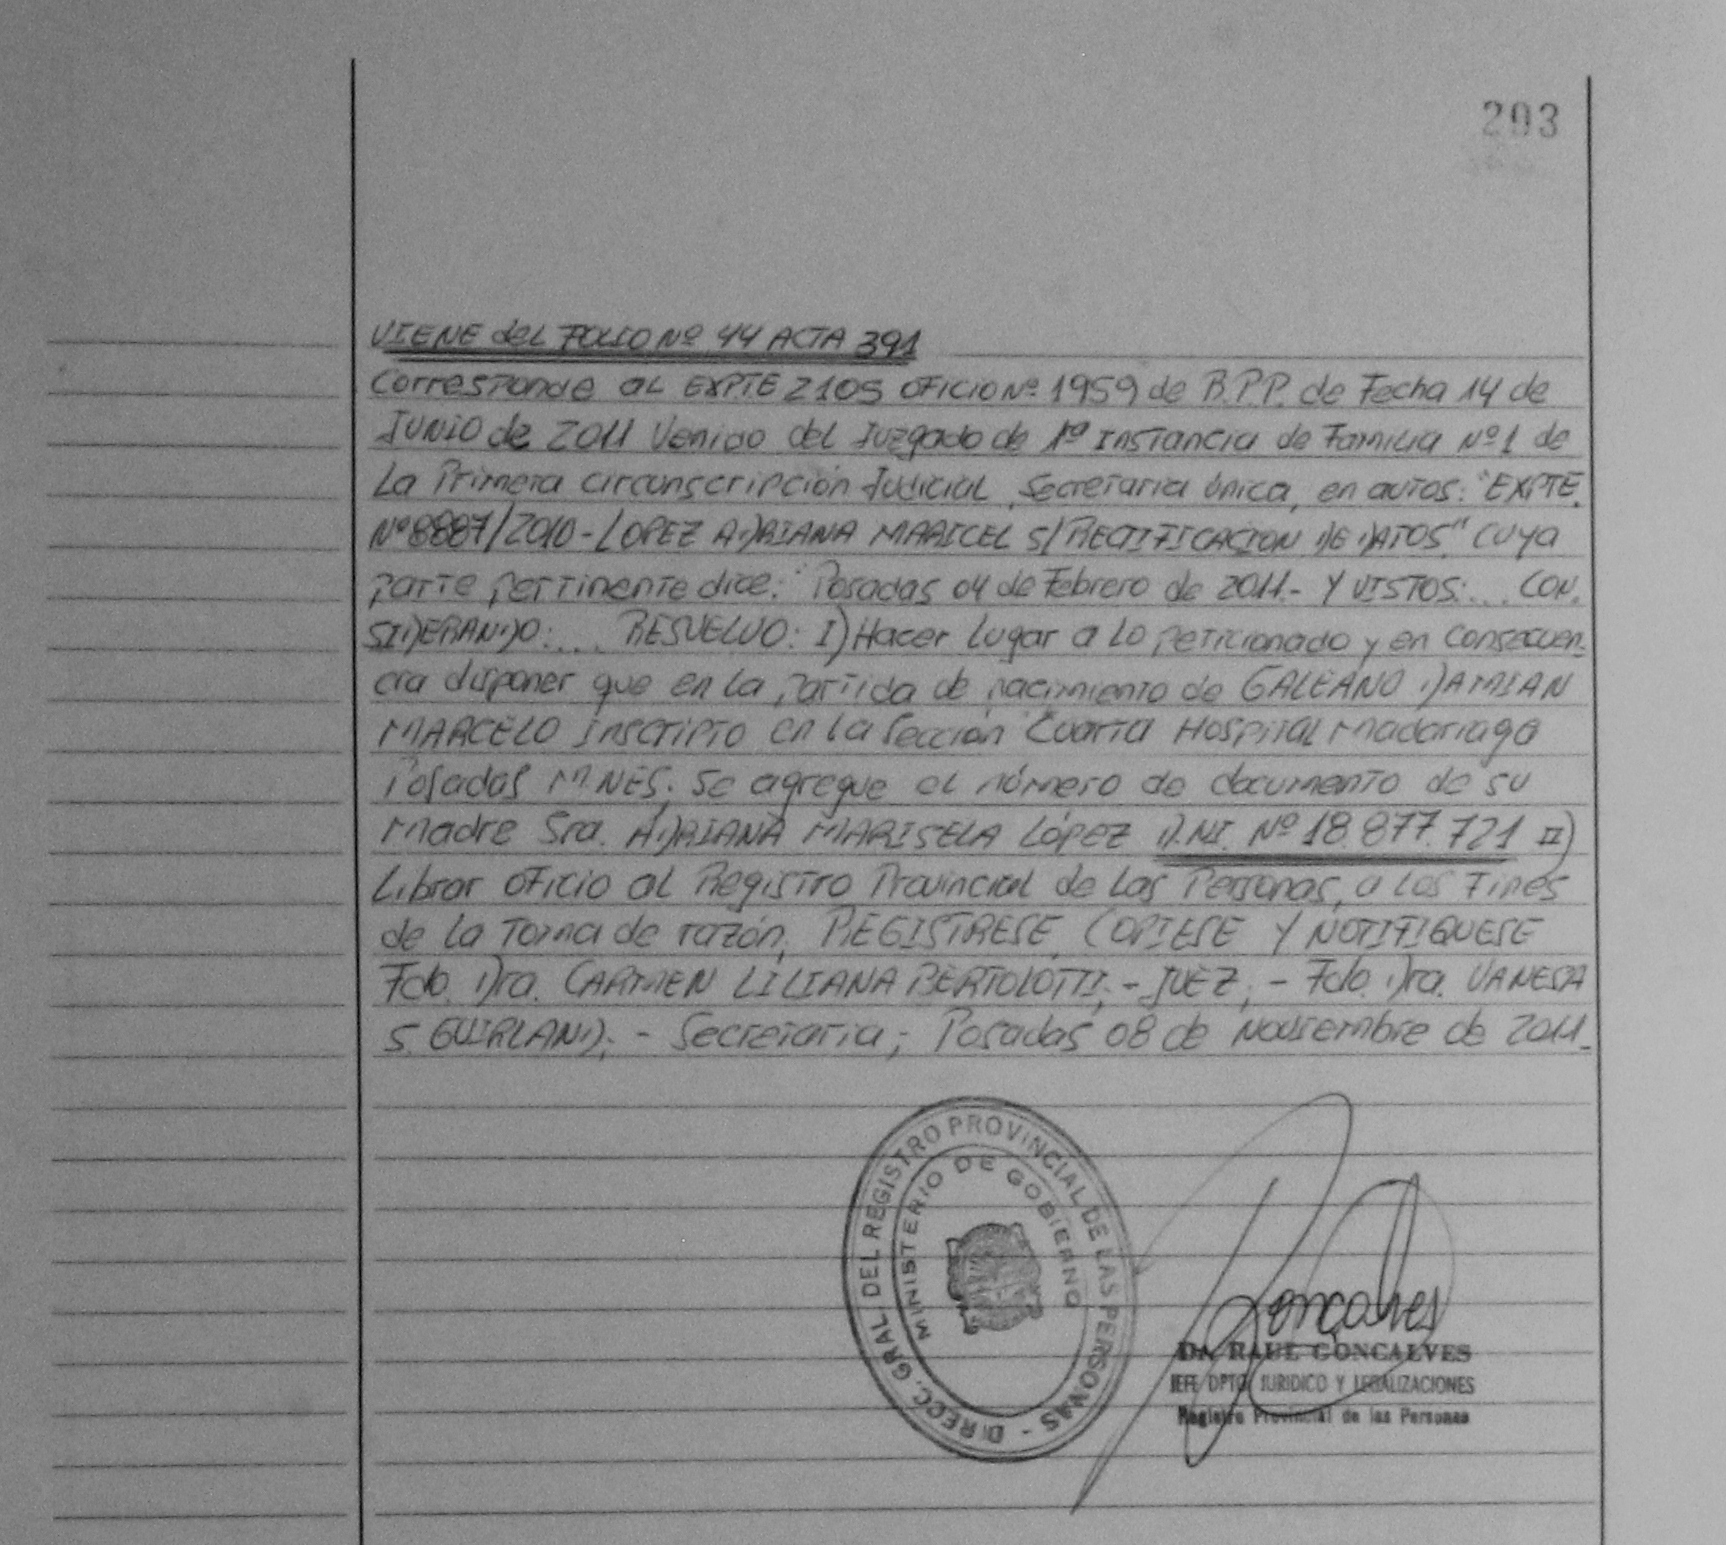 203
VIENE del FOLIO Nº 44 ACTA 391
Corresponde al EXPTE 2105 OFICIO Nº 1959 de B.P.P. de Fecha 14 de
JUNIO de 2011 Venido del Juzgado de 1º Instancia de Familia Nº 1 de
La Primera circunscripción Judicial, Secretaria única, en autos: "EXPTE.
Nº 8887/2010 - LOPEZ ADRIANA MARICEL S/RECTIFICACION DE DATOS" cuya
parte pertinente dice: "Posadas 04 de Febrero de 2011.- Y VISTOS:... CON.
SIDERANDO:... RESUELVO: I) Hacer lugar a lo peticionado y en consecuen-
cia disponer que en la partida de nacimiento de GALEANO DAMIAN
MARCELO inscripto en la Sección Cuarta Hospital Madariaga
Posadas MNES. Se agregue el número de documento de su
Madre Sra. ADRIANA MARISELA LÓPEZ D.NI. Nº 18.877.721 II)
Librar oficio al Registro Provincial de las Personas, a los Fines
de la Toma de razón. REGISTRESE, COPIESE Y NOTIFIQUESE
Fdo. Dra. CARMEN LILIANA BERTOLOTTI.- JUEZ.- Fdo. Dra. VANESA
S. GUIRLAND.- Secretaria; Posadas 08 de Noviembre de 2011.
DIRECC. GRAL. DEL REGISTRO PROVINCIAL DE LAS PERSONAS -
MINISTERIO DE GOBIERNO
Goncalves
Dr. RAUL GONCALVES
JEFE DPTO. JURIDICO Y LEGALIZACIONES
Registro Provincial de las Personas